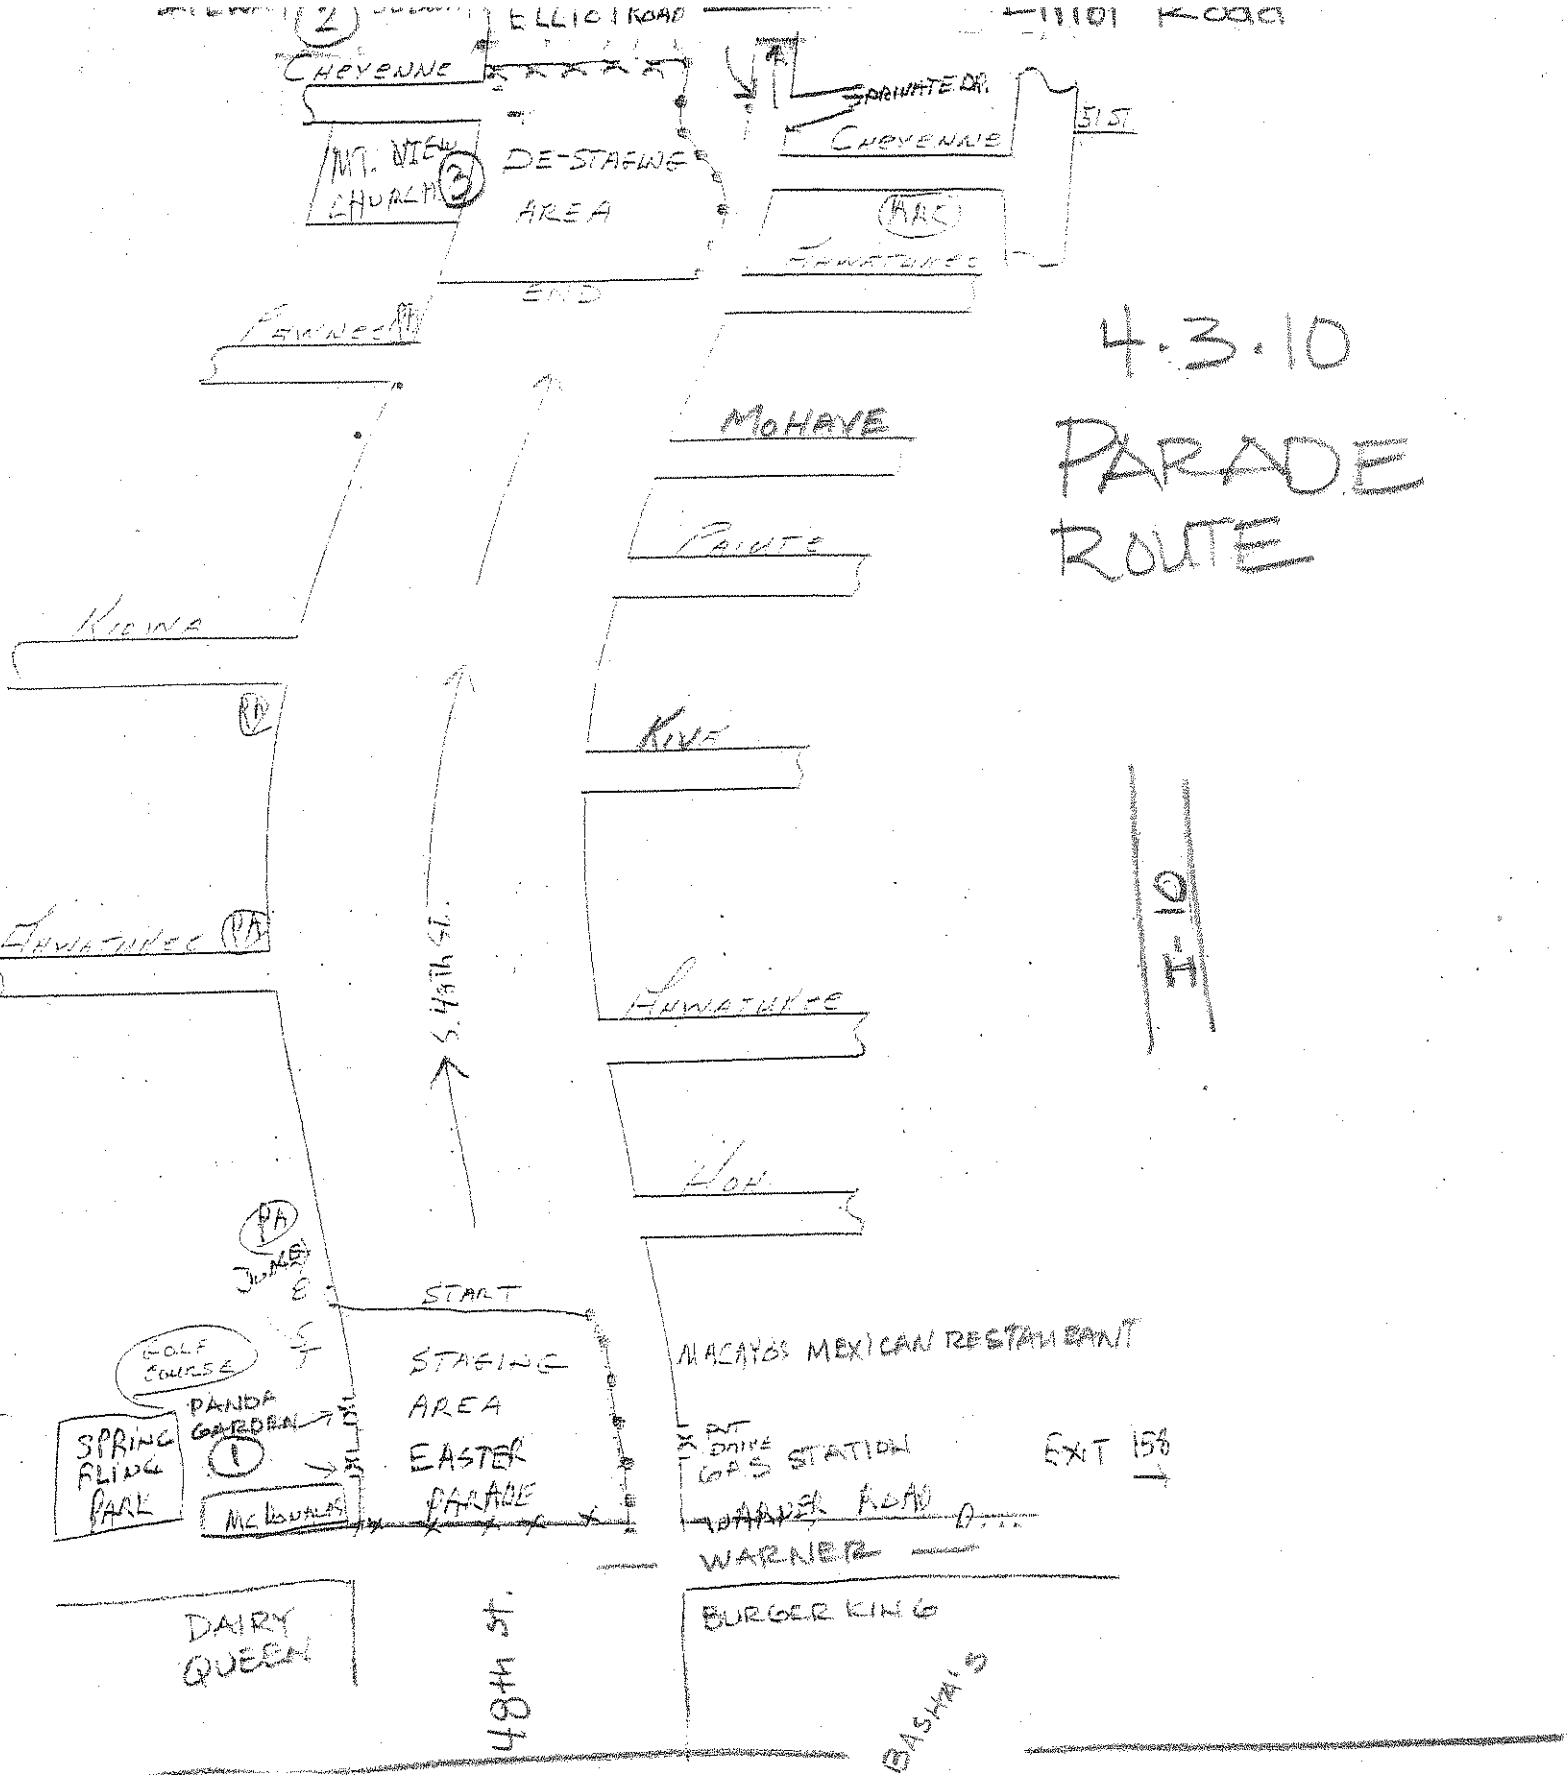 2
ELLIOT ROAD
Elliot Road
CHEYENNE
PRIVATE DR.
51 ST
CHEYENNE
MT. VIEW
CHURCH
3
DE-STAGING
AREA
AHWATUKEE
END
PAWNEE
4.3.10
PARADE
ROUTE
MOHAVE
PAIUTE
KIOWA
PA
KIVA
I-10
AHWATUKEE
PA
S. 48th St.
AHWATUKEE
PA
START
GOLF
COURSE
STAGING
AREA
EASTER
PARADE
MACAYOS MEXICAN RESTAURANT
PANDA
GARDEN
1
SPRING
FLING
PARK
McDONALDS
GAS STATION
EXIT 158
WARNER ROAD
WARNER
DAIRY
QUEEN
48th St.
BURGER KING
BASHA'S